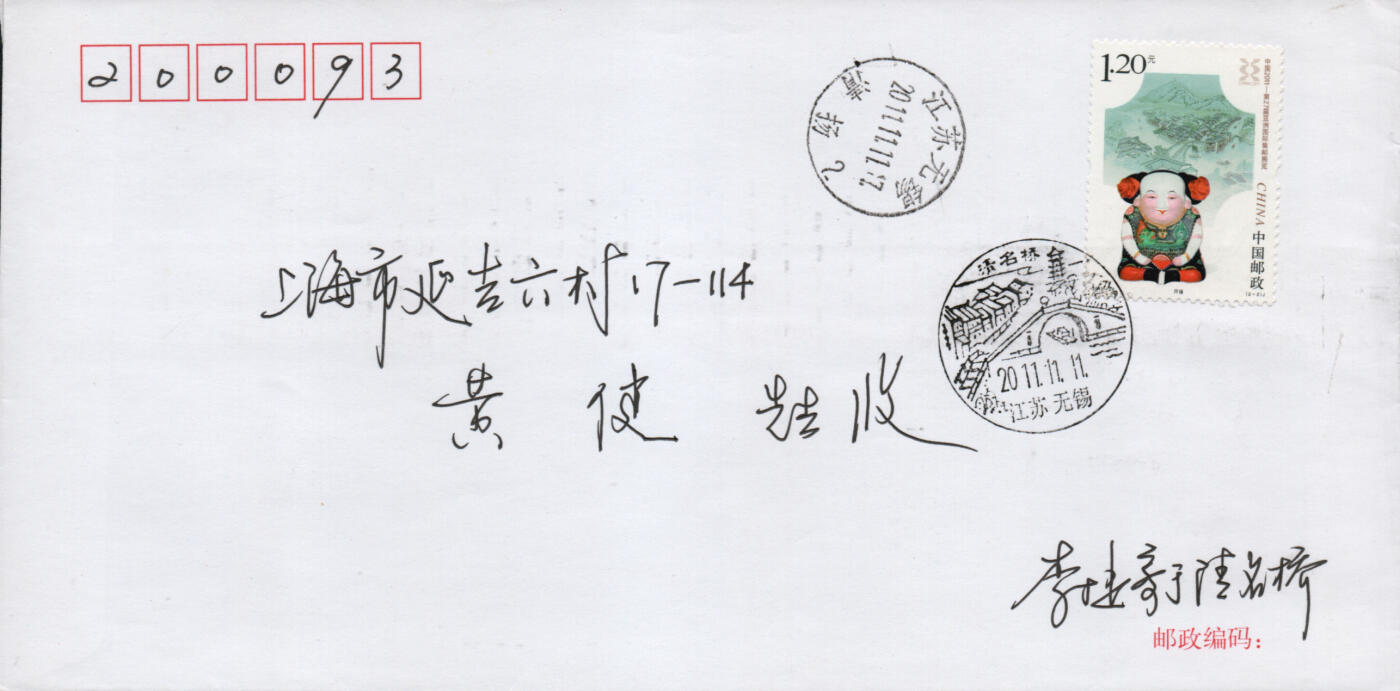 200093
江苏无锡
2011.11.11.17
清扬
1.20元
中国2011—第27届亚洲国际集邮展览
CHINA
中国邮政
(2-2)J
上海市延吉六村17-114
清名桥
2011.11.11.
江苏 无锡
黄 健 先生 收
李 寄于清名桥
邮政编码: